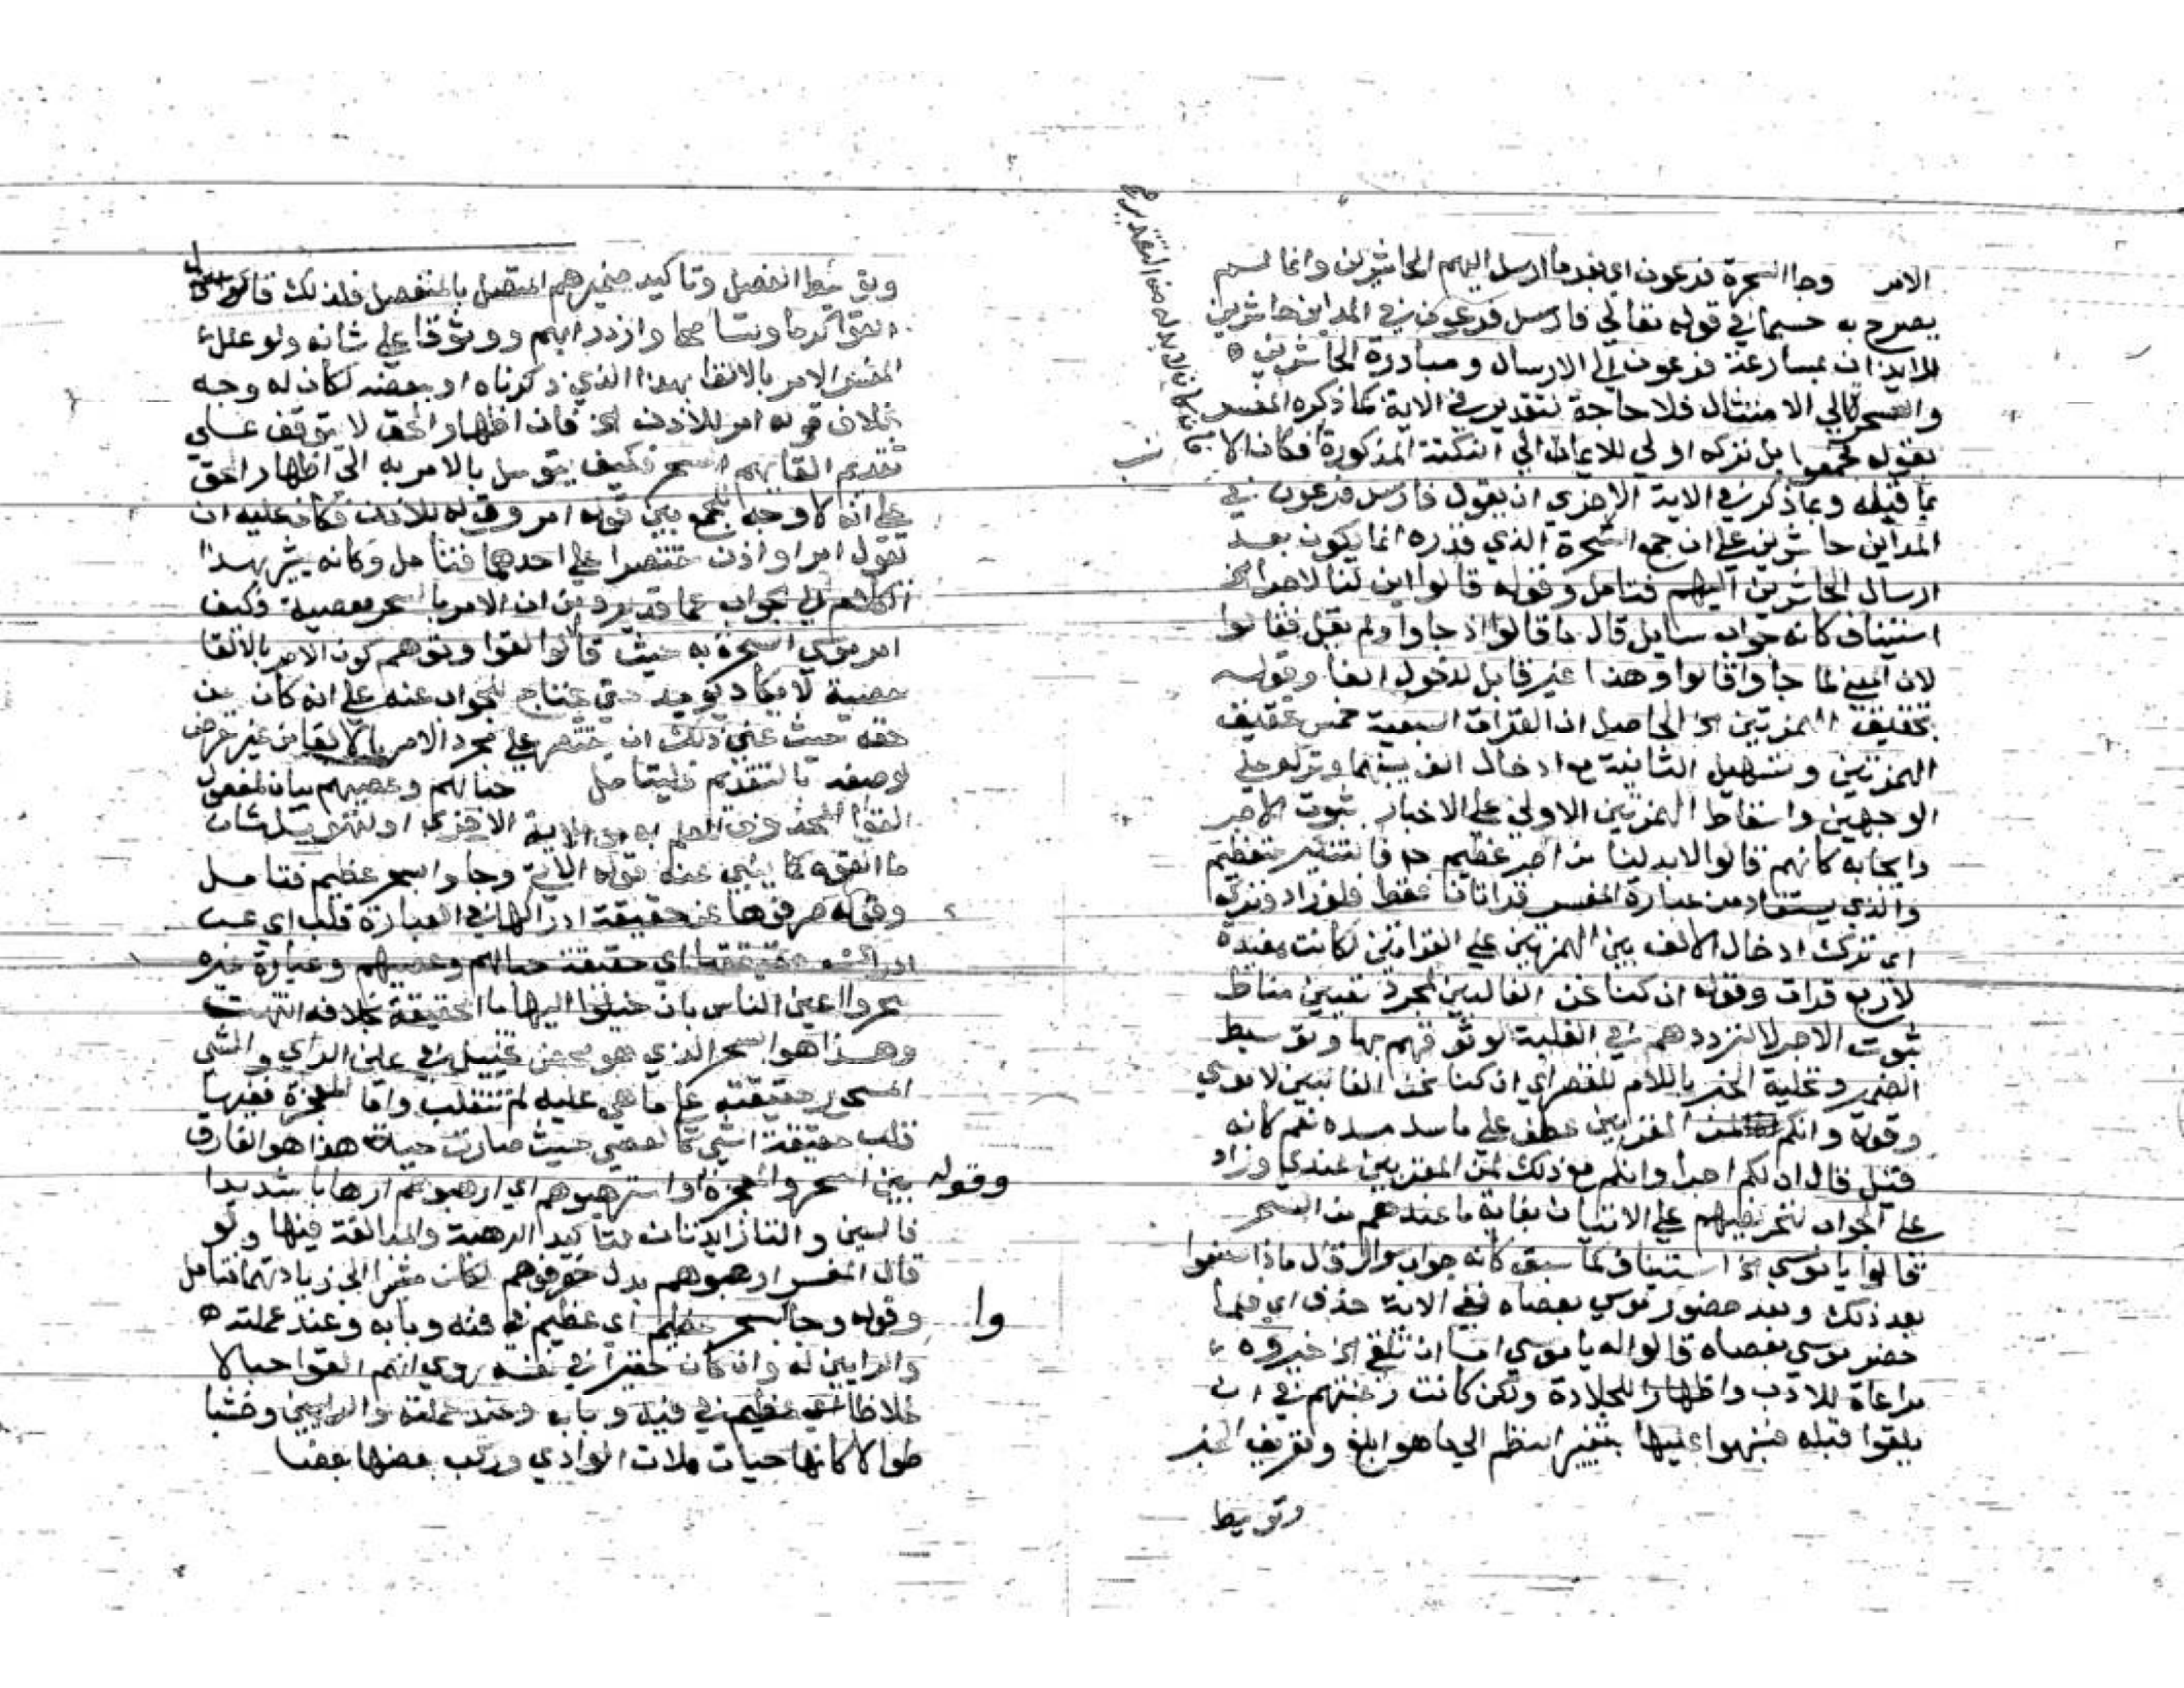 الامر وجا السحرة فرعون اي بعد ما ارسل اليهم الحاشرين وانما لم
يصرح به حسبما في قوله تعالى فارسل فرعون في المداين حاشرين
للايذان بمسارعة فرعون الى الارسال ومبادرة الحاشرين
والسحرة الى الامتثال فلا حاجة لتقدير في الاية كما ذكره المفسر
بقوله فجمعوا بل تركه اولى للايماء الى النكتة المذكورة فكان الا
بما قبله وبما ذكر في الاية الاخرى ان يقول فارسل فرعون في
المداين حاشرين على ان جمع السحرة الذي قدره انما يكون بعد
ارسال الحاشرين اليهم فتامل وقوله قالوا اين لنا لاجرا الخ
استيناف كانه جواب سايل قال ما قالوا اذ جاوا ولم يقل فقالوا
لان المعنى لما جاوا قالوا وهذا غير قابل لدخول الفا وقوله
بتحقيق الهمزتين الخ الحاصل ان القرات السبعية خمس تحقيق
الهمزتين وتسهيل الثانية مع ادخال الف بينهما وتركه على
الوجهين واسقاط الهمزتين الاولى على الاخبار بثبوت الاجر
وايجابه كانهم قالوا لابد لنا من اجر عظيم فالتنكير للتعظيم
والذي يستفاد من عبارة المفسر قراتان فقط فلو زاد وتركه
اي ترك ادخال الالف بين الهمزتين على القراتين لكانت مفيدة
لاربع قرات وقوله ان كنا نحن الغالبين لمجرد تعيين مناط
ثبوت الاجر لا لترددهم في الغلبة لوثوقهم بها وتوسيط
الضمير وتحلية الخبر باللام للقصر اي ان كنا نحن الغالبين لا موسى
وقوله وانكم لمن المقربين عطف على ما سد مسده نعم كانه
قيل قال ان لكم اجرا وانكم مع ذلك لمن المقربين عندي وزاد
على الجواب لتحريضهم على الاتيان بغاية ما عندهم من السحر
قالوا يا موسى الخ استيناف كما سبق كانه جواب سوال قال ماذا صنعوا
بعد ذلك وبعد حضور موسى بعصاه ففي الاية حذف اي فلما
حضر موسى بعصاه قالوا له يا موسى اما ان تلقي الخ خيروه
مراعاة للادب واظهارا للجلادة ولكن كانت رغبتهم في ان
يلقوا قبله فنبهوا عليها بتغيير النظم الى ما هو ابلغ وتعريف الخبر
وتوسيط
وتوسيط الفصل وتاكيد ضميرهم المتصل بالمنفصل فلذلك قال موسى
القوا كرما وتسامحا وازدراء بهم ووثوقا على شانه ولو علل
المفسر الامر بالالقا بهذا الذي ذكرناه او بعضه لكان له وجه
بخلاف قوله امر للاذن الخ فان اظهار الحق لا يتوقف على
تقديم القايهم السحر فكيف يتوسل بالامر به الى اظهار الحق
على انه لا وجه للجمع بين قوله امر وقوله للاذن فكان عليه ان
يقول امر او اذن مقتصرا على احدهما فتامل وكانه يشير بهذا
الكلام الى جواب عما قد يرد من ان الامر بالسحر معصية وكيف
امر موسى السحرة به حيث قال القوا وتوهم كون الامر بالالقا
معصية لا يكاد يوجد حتى يحتاج للجواب عنه على انه كان من
حقه حيث عني ذلك ان يقتصر على مجرد الامر بالالقا من غير تعرض
لوصفه بالتقديم فليتامل حبالهم وعصيهم بيان لمفعول
القوا المحذوف للعلم به من الاية الاخرى او لتهويل شان
ما القوه كما ينبي عنه قوله الاتي وجاوا بسحر عظيم فتامل
وقوله صرفوها عن حقيقة ادراكها في العبارة قلب اي عن
ادراك حقيقتها اي حقيقة حبالهم وعصيهم وعبارة غيره
سحروا اعين الناس بان خيلوا اليها ما الحقيقة بخلافه انتهت
وهذا هو السحر الذي هو محض تخييل في عين الراي والشي
المسحور حقيقته على ما هي عليه لم تنقلب واما المعجزة ففيها
قلب حقيقة الشي كالعصى حيث صارت حية هذا هو الفارق
وقوله بين السحر والمعجزة واسترهبوهم اي ارهبوهم ارهابا شديدا
فالسين والتا زايدتان لتاكيد الرهبة والمبالغة فيها ولو
قال المفسر ارهبوهم بدل خوفوهم لكان مشيرا الى زيادتهما فتامل
وقوله وجاوا بسحر عظيم اي عظيم في فنه وبابه وعند عملته
والرايين له وان كان حقيرا في نفسه روي انهم القوا حبالا
غلاظا اي عظيم في فنه وبابه وعند عملته والرايين وخشبا
طوالا كانها حيات ملات الوادي وركب بعضها بعضا